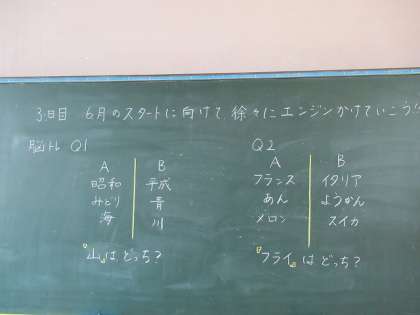 3日目 6月のスタートに向けて 徐々にエンジンかけていこう!!
脳トレ Q1
A B
昭和 平成
みどり 青
海 川
「山」はどっち?
Q2
A B
フランス イタリア
あん ようかん
メロン スイカ
「フライ」はどっち?